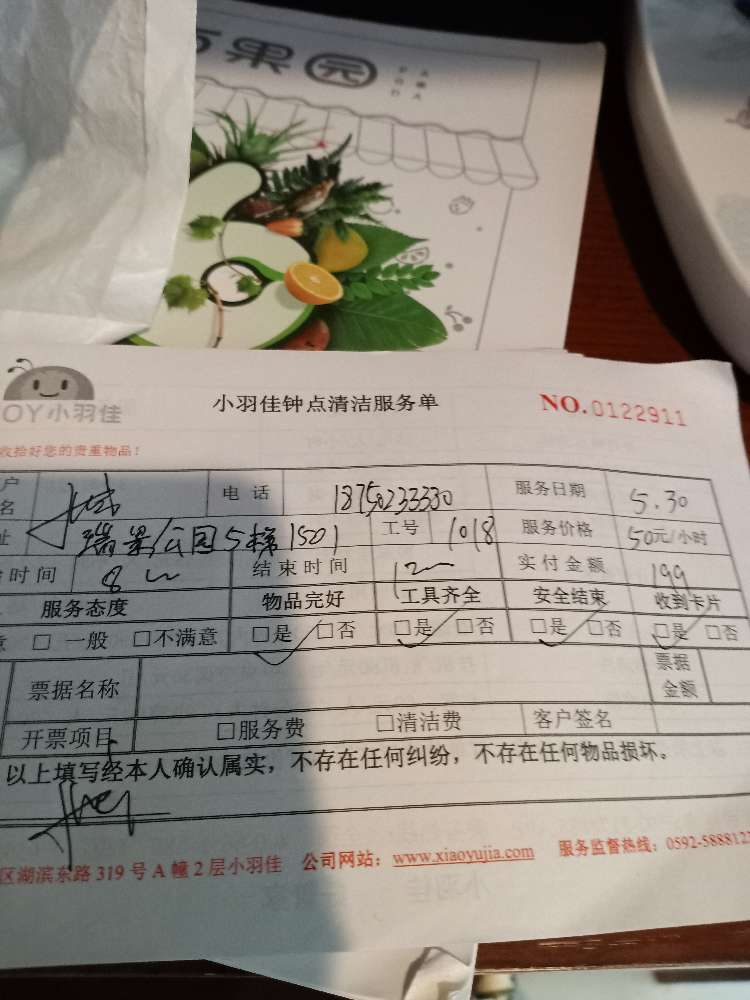 果园
OY小羽佳
小羽佳钟点清洁服务单
NO.0122911
收拾好您的贵重物品!
户名 电话 18750233330 服务日期 5.30
址 瑞景公园5梯1501 工号 1018 服务价格 50元/小时
时间 8 结束时间 12 实付金额 199
服务态度 物品完好 工具齐全 安全结束 收到卡片
意 □一般 □不满意 □是 □否 □是 □否 □是 □否 □是 □否
票据名称 票据金额
开票项目 □服务费 □清洁费 客户签名
以上填写经本人确认属实,不存在任何纠纷,不存在任何物品损坏。
区湖滨东路319号A幢2层小羽佳 公司网站:www.xiaoyujia.com 服务监督热线:0592-588812